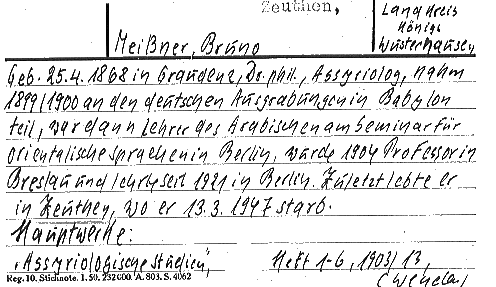 Zeuthen,
Landkreis
Königs
Wusterhausen
Meißner, Bruno
Geb. 25.4.1868 in Graudenz, Dr. phil., Assyriolog, nahm
1899/1900 an den deutschen Ausgrabungen in Babylon
teil, war dann Lehrer des Arabischen am Seminar für
orientalische Sprachen in Berlin, wurde 1904 Professor in
Breslau und lehrte seit 1921 in Berlin. Zuletzt lebte er
in Zeuthen, wo er 13.3.1947 starb.
Hauptwerke:
"Assyriologische Studien", Heft 1-6, 1903/13,
Reg. 10. Stichnote. 1. 50. 232 000. A. 803. S. 4062